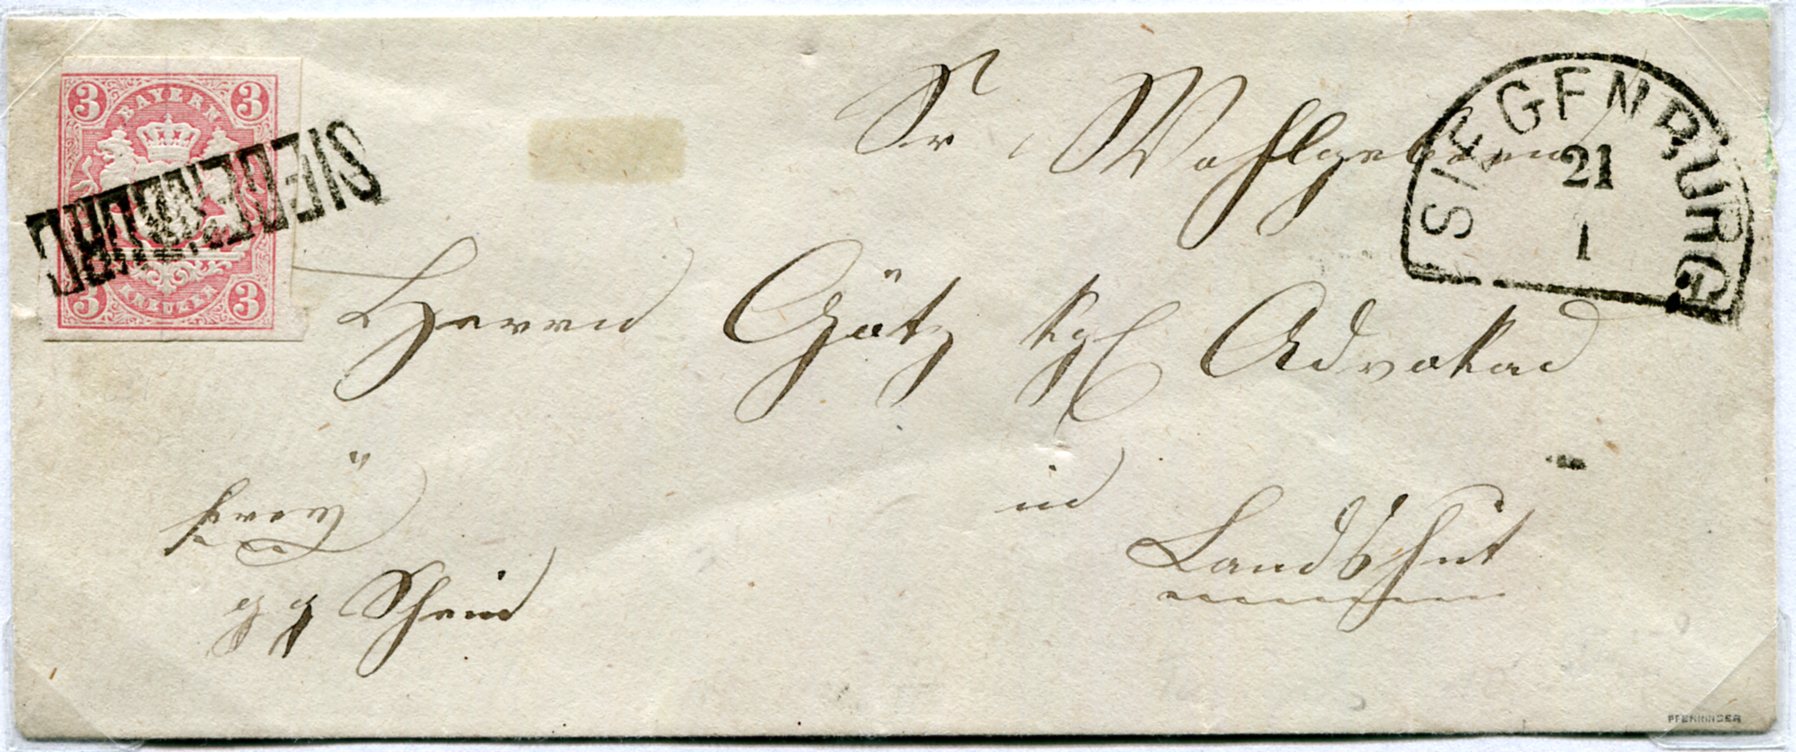 3 BAYERN 3
3 KREUZER 3
SIEGENBURG
SIEGENBURG
21
1
Sr Wohlgeboren
Herrn Götz kgl Advokad
in
Landshut
freÿ
gg Schein
PFENNINGER